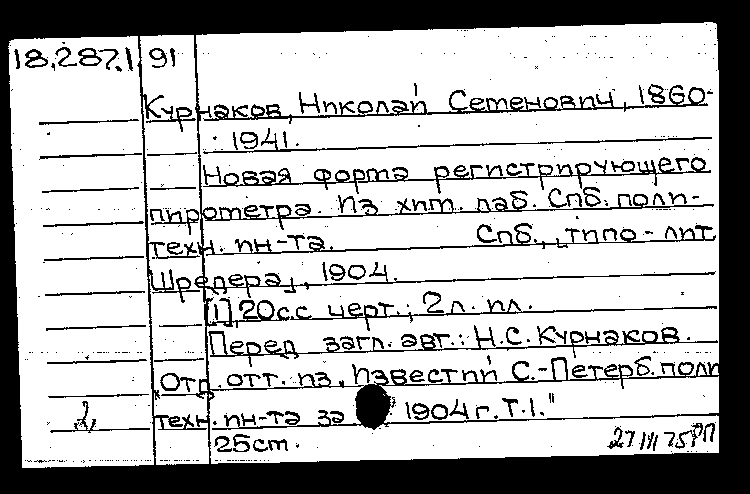 18.287.1.91
Курнаков, Николай Семенович, 1860-
1941.
Новая форма регистрирующего
пирометра. Из хим. лаб. Спб. поли-
техн. ин-та. Спб., "типо-лит.
Шредера", 1904.
[1], 20 с с черт.; 2 л. ил.
Перед загл. авт.: Н.С. Курнаков.
"Отд. отт. из "Известий С.-Петерб. поли
техн. ин-та за 1904 г. Т.1."
2,
25 cm.
27 III 75 РП